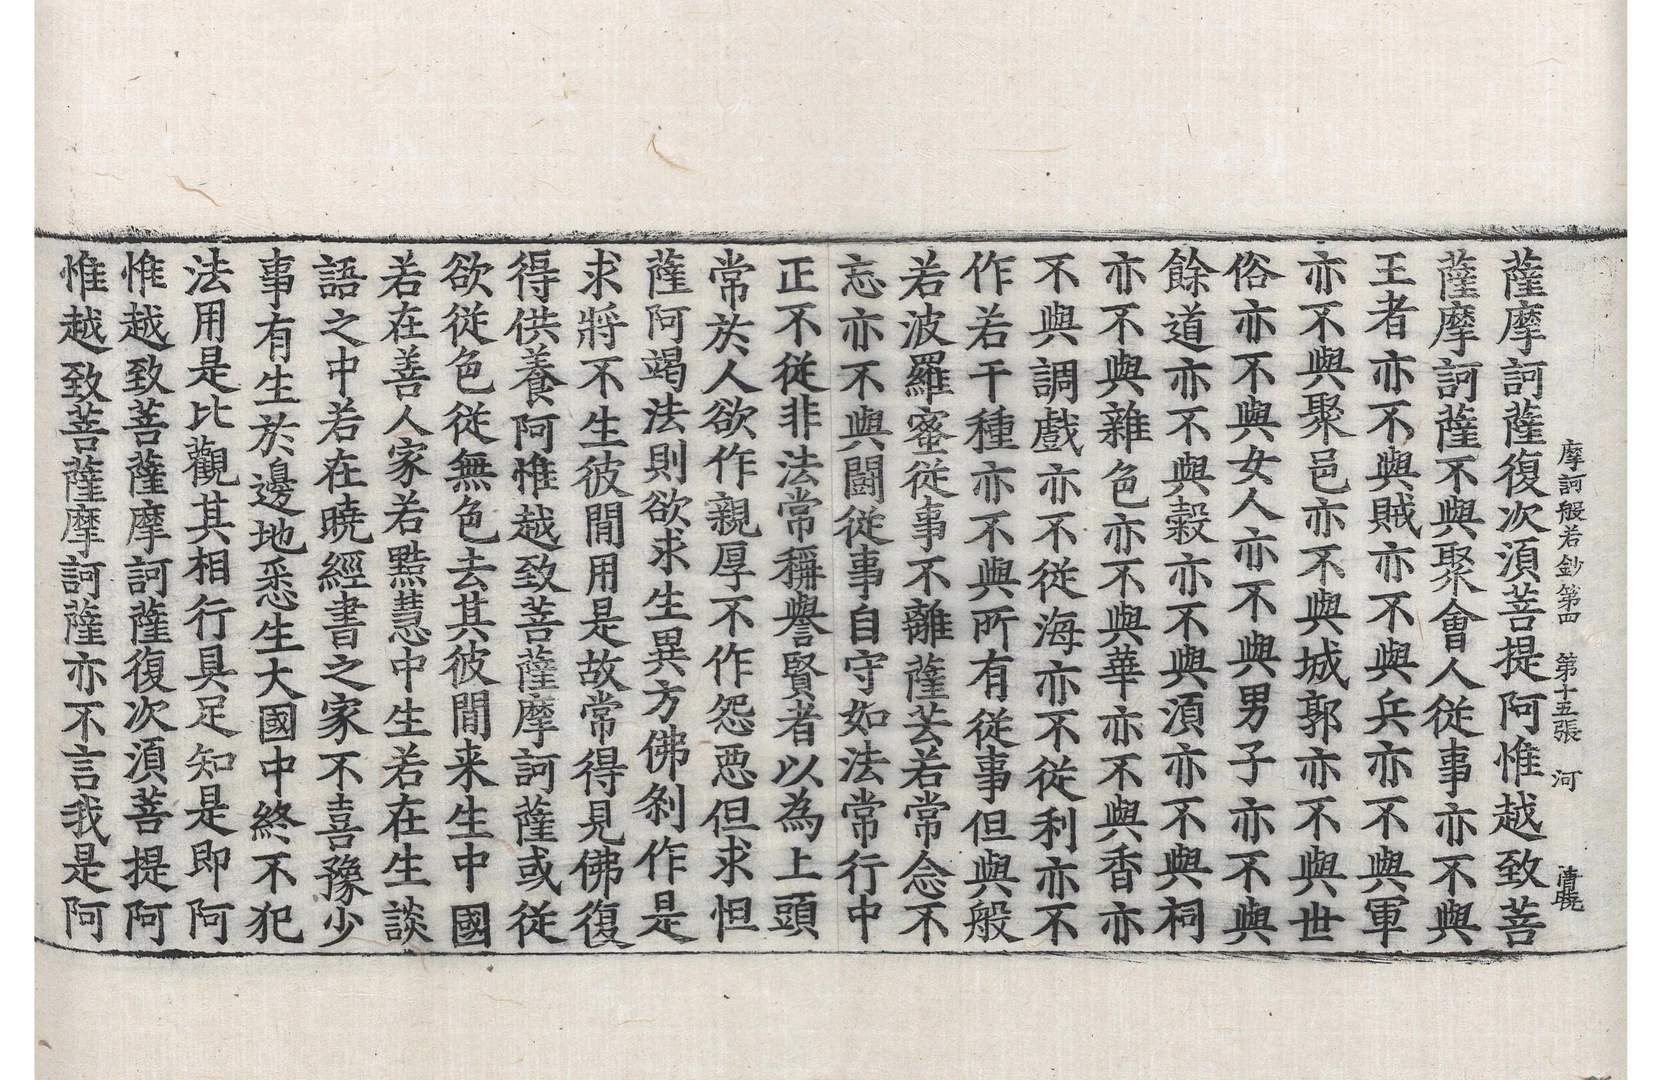 摩訶般若鈔第四　第十五張　河　清曉
薩摩訶薩復次須菩提阿惟越致菩
薩摩訶薩不與聚會人従事亦不與
王者亦不與賊亦不與兵亦不與軍
亦不與聚邑亦不與城郭亦不與世
俗亦不與女人亦不與男子亦不與
餘道亦不與穀亦不與湏亦不與祠
亦不與雜色亦不與華亦不與香亦
不與調戲亦不従海亦不従利亦不
作若干種亦不與所有従事但與般
若波羅蜜従事不離薩芸若常念不
忘亦不與鬪従事自守如法常行中
正不従非法常稱譽賢者以為上頭
常於人欲作親厚不作怨惡但求怛
薩阿竭法則欲求生異方佛剎作是
求將不生彼間用是故常得見佛復
得供養阿惟越致菩薩摩訶薩或従
欲従色従無色去其彼間来生中國
若在善人家若黠慧中生若在生談
語之中若在曉經書之家不喜豫少
事有生於邊地悉生大國中終不犯
法用是比觀其相行具足知是即阿
惟越致菩薩摩訶薩復次須菩提阿
惟越致菩薩摩訶薩亦不言我是阿